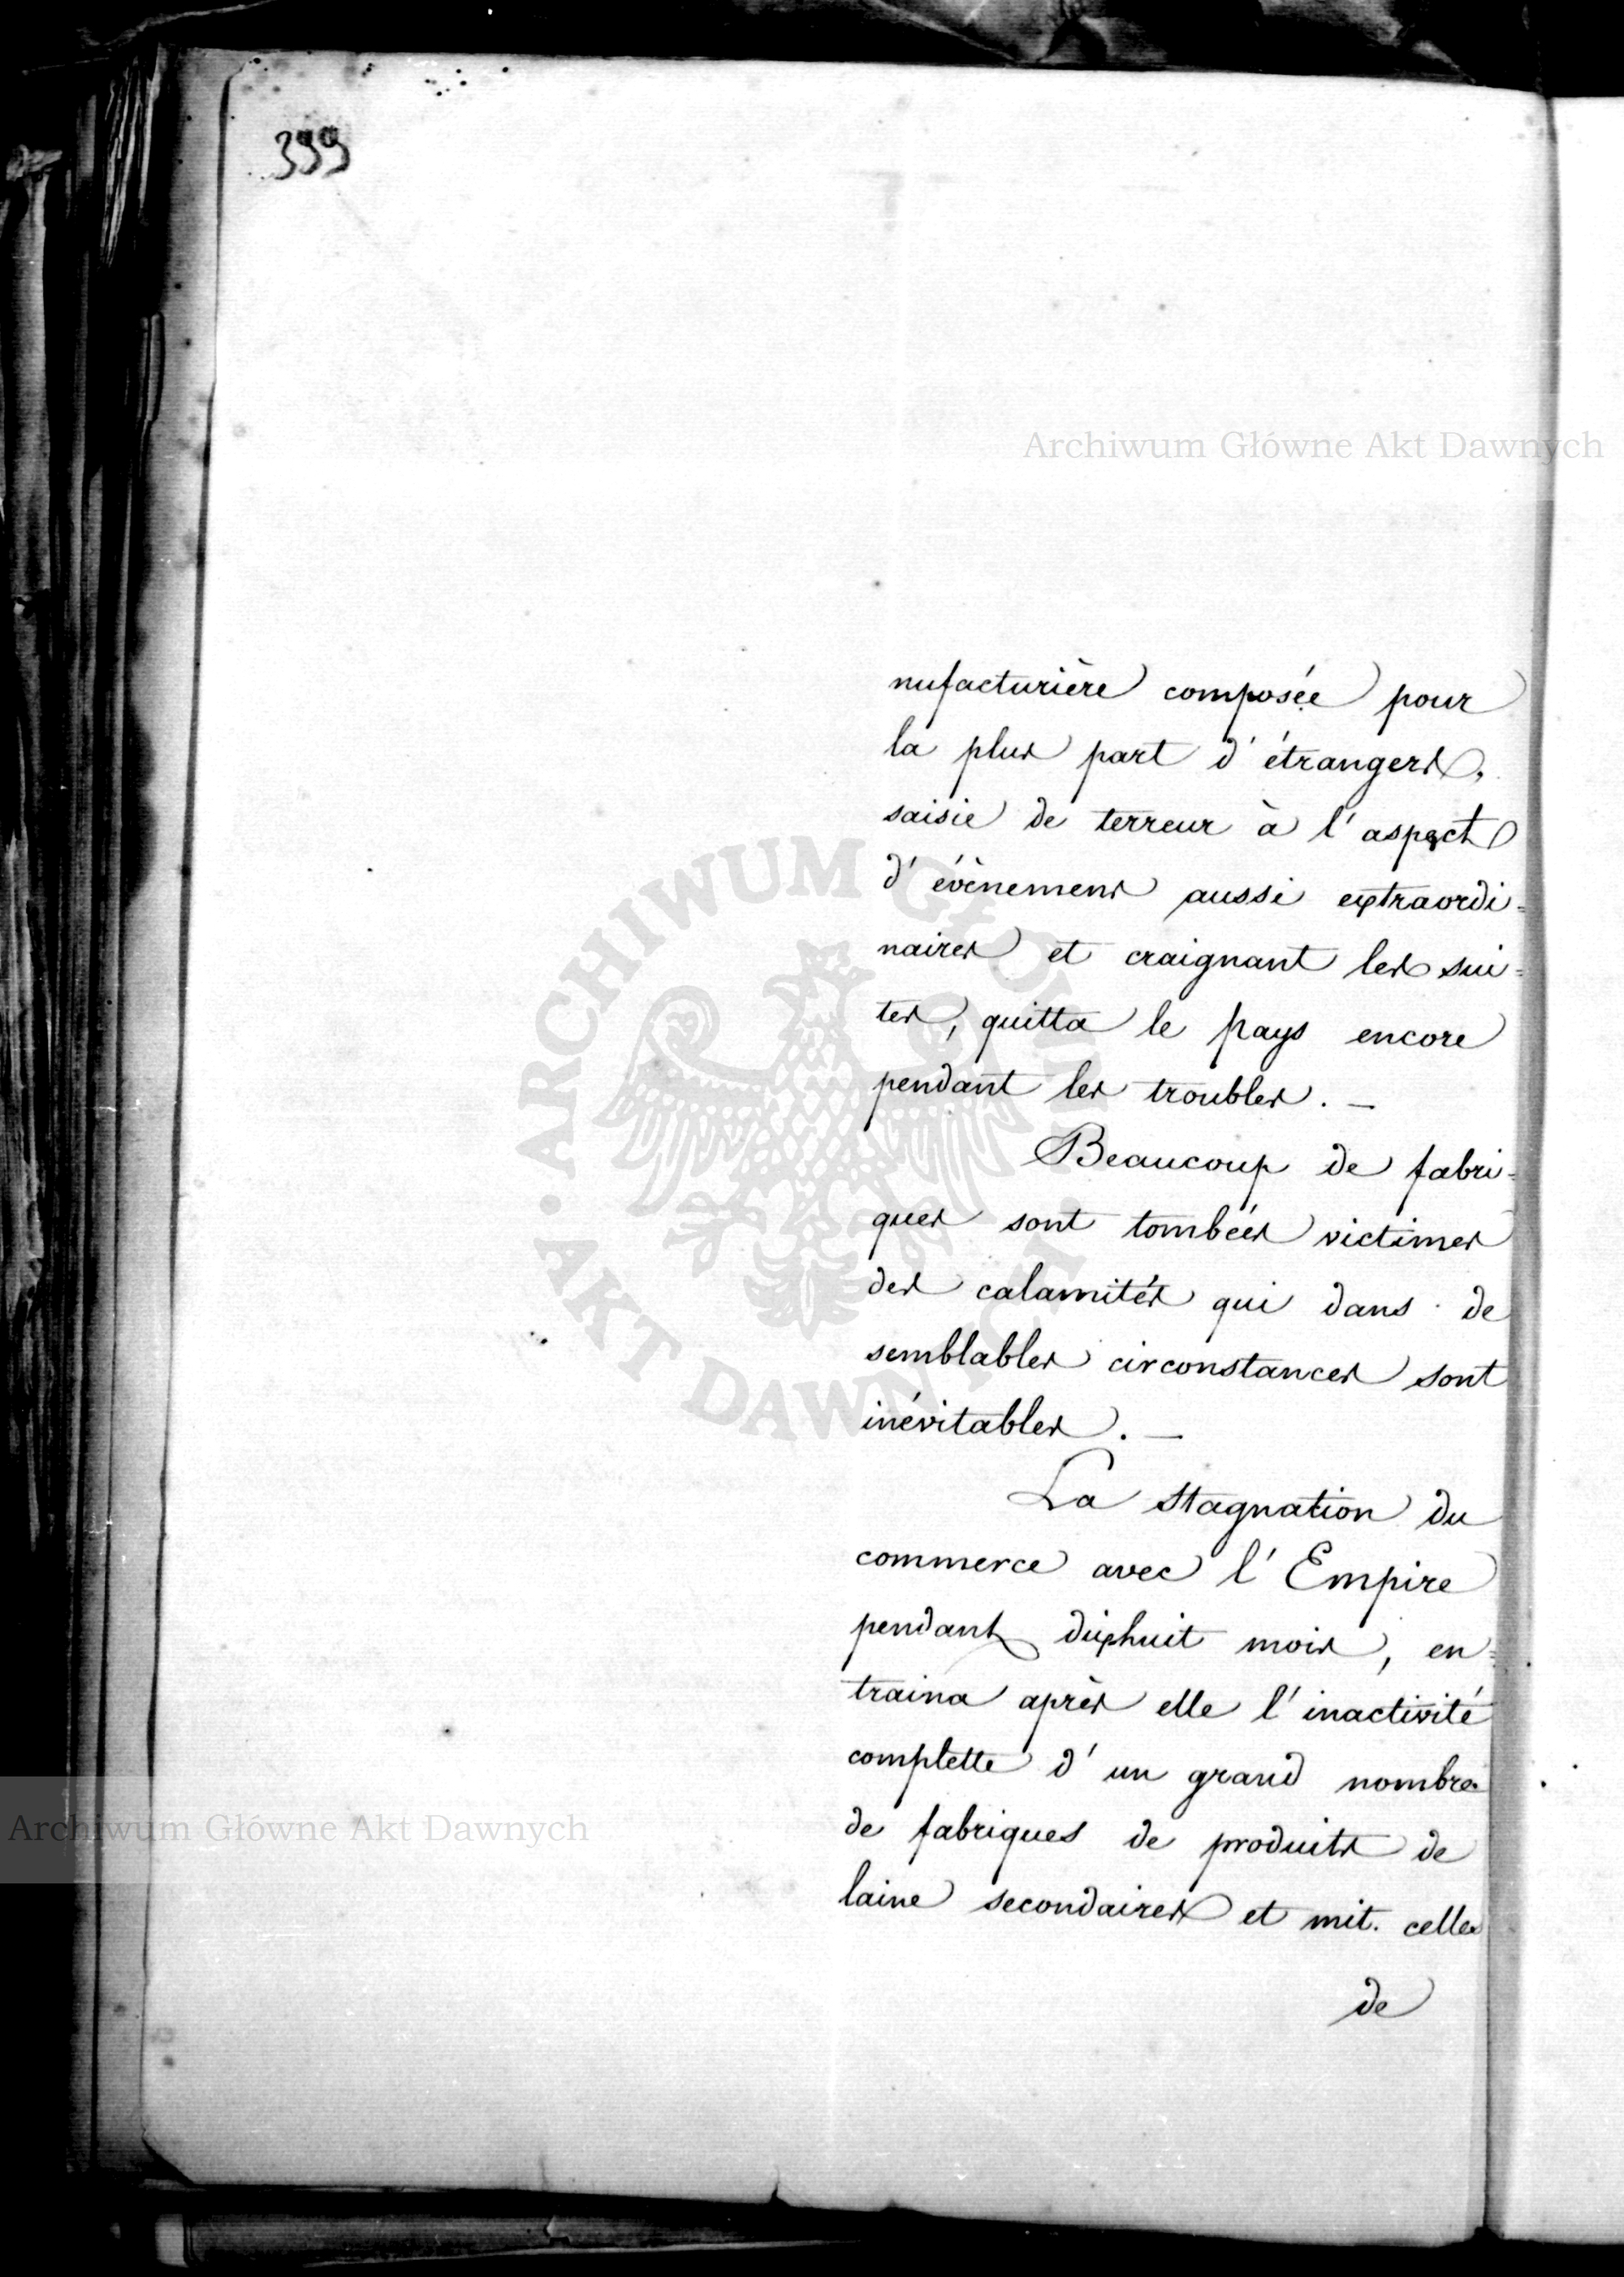 399
Archiwum Główne Akt Dawnych
nufacturière composée pour
la plus part d'étrangers,
saisie de terreur à l'aspect
d'évènemens aussi extraordi=
naires et craignant les sui=
tes, quitta le pays encore
pendant les troubles. —
Beaucoup de fabri=
ques sont tombées victimes
des calamités qui dans de
semblables circonstances sont
inévitables. —
La stagnation du
commerce avec l'Empire
pendant dixhuit mois, en=
traina après elle l'inactivité
complette d'un grand nombre
de fabriques de produits de
laine secondaires et mit celles
de
Archiwum Główne Akt Dawnych
ARCHIWUM GŁÓWNE AKT DAWNYCH